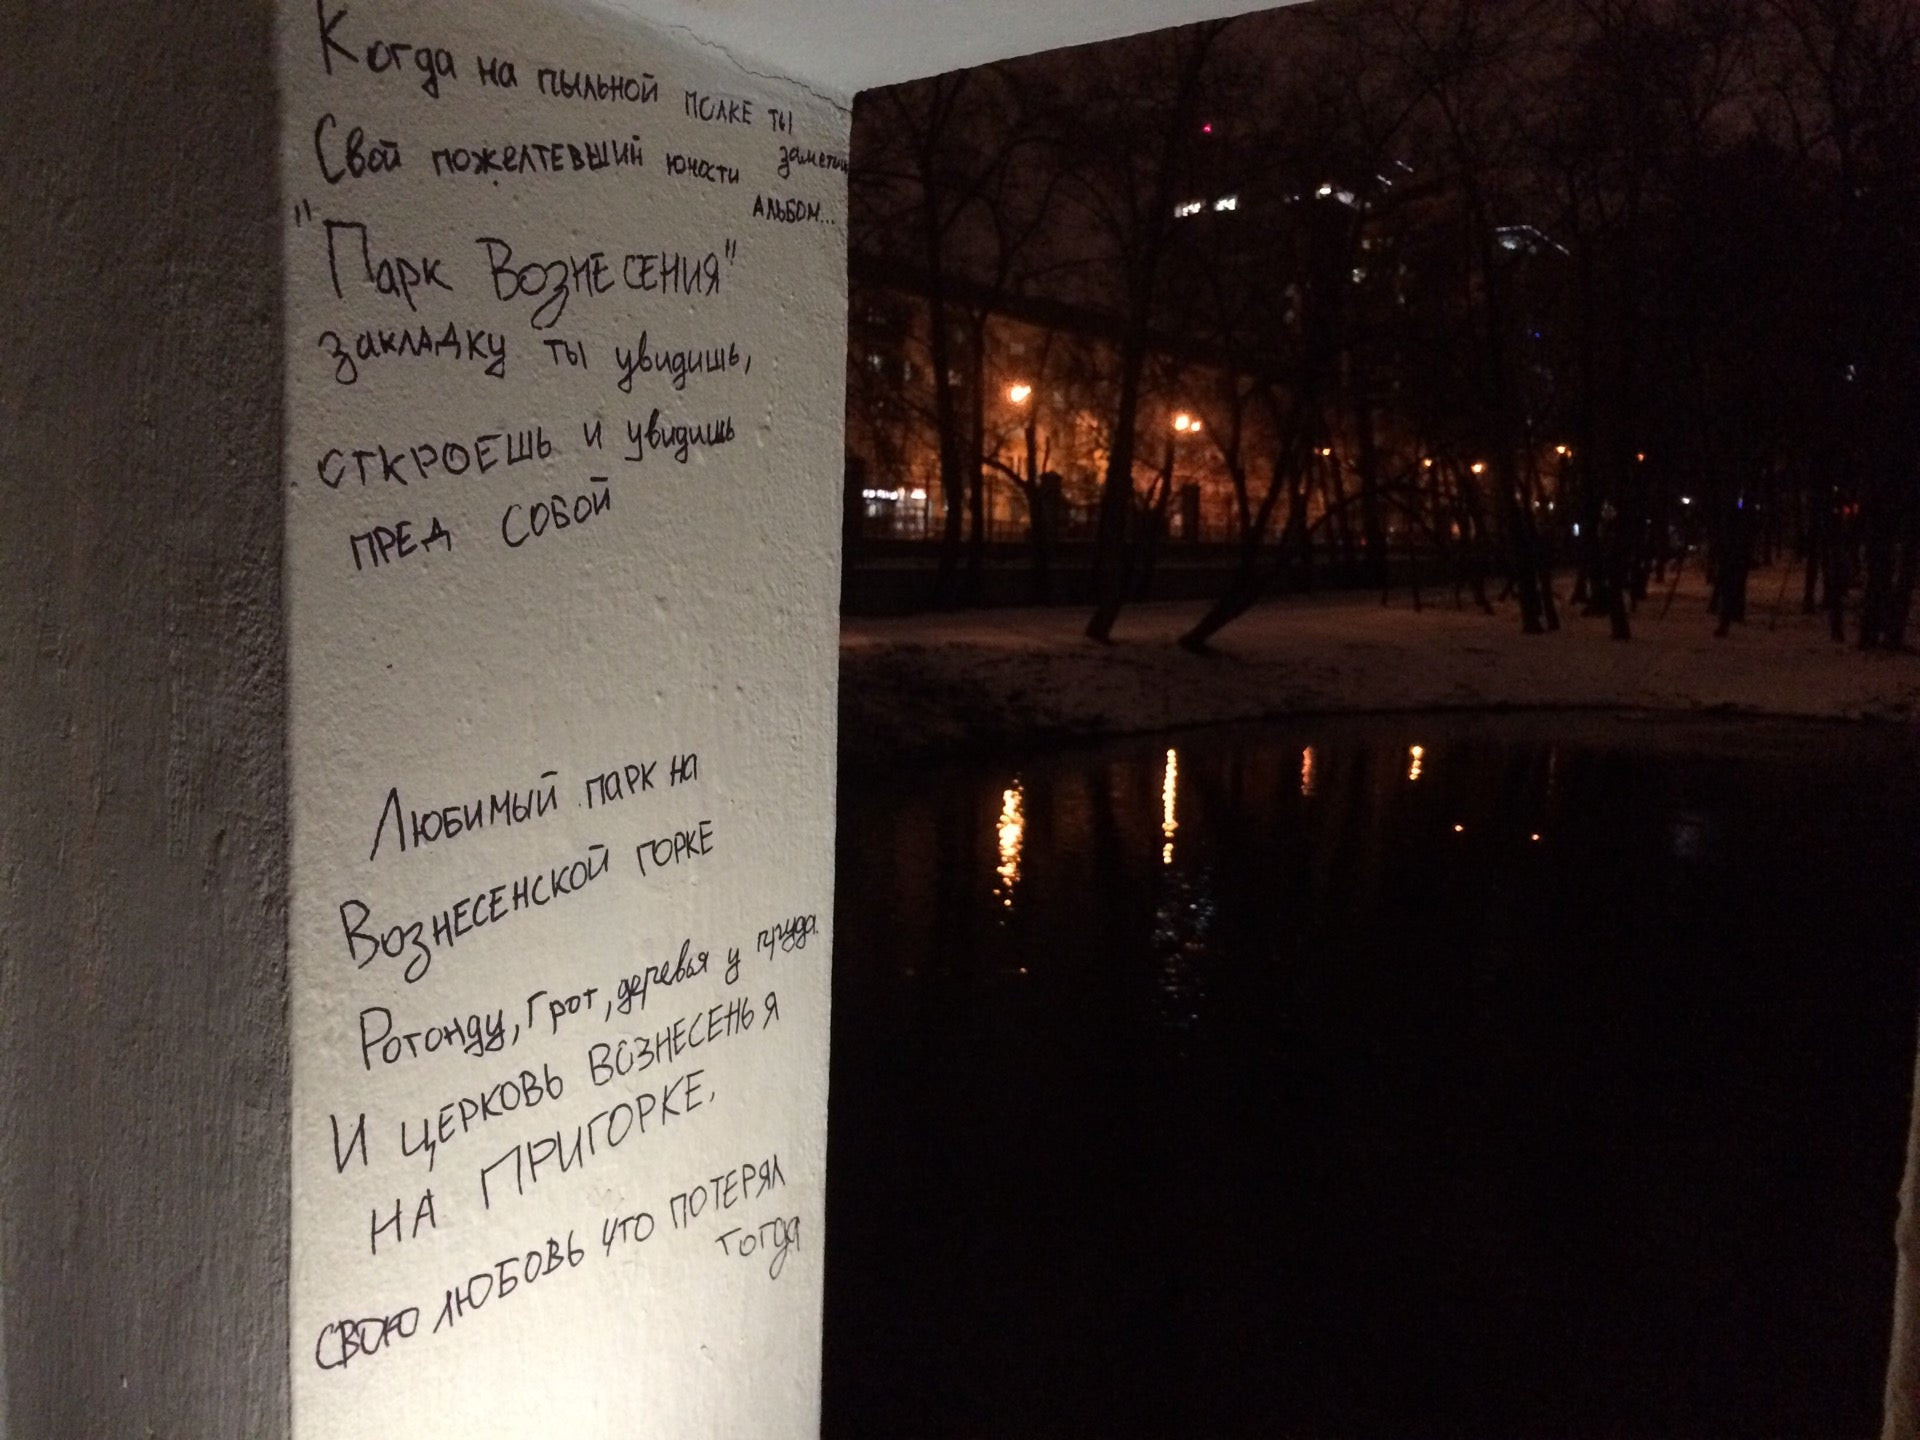 Когда на пыльной полке ты
заметишь
Свой пожелтевший юности
альбом...
"Парк Вознесения"
закладку ты увидишь,
откроешь и увидишь
пред собой
Любимый парк на
Вознесенской горке
Ротонду, Грот, деревья у пруда
И церковь Вознесенья
на пригорке,
свою любовь что потерял
тогда